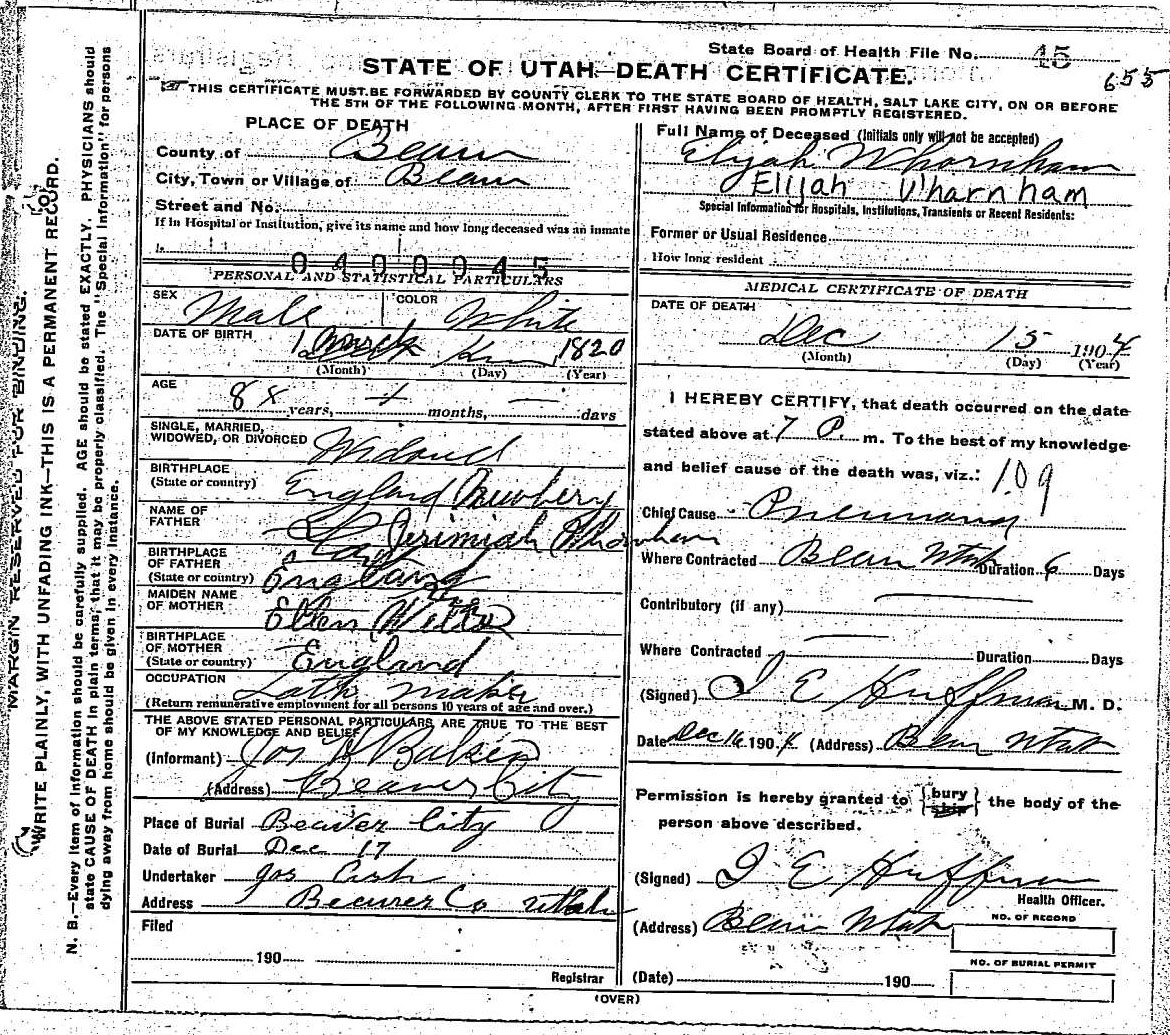 State Board of Health File No. 45
655
STATE OF UTAH—DEATH CERTIFICATE.
THIS CERTIFICATE MUST BE FORWARDED BY COUNTY CLERK TO THE STATE BOARD OF HEALTH, SALT LAKE CITY, ON OR BEFORE
THE 5TH OF THE FOLLOWING MONTH, AFTER FIRST HAVING BEEN PROMPTLY REGISTERED.
MARGIN RESERVED FOR BINDING.
WRITE PLAINLY, WITH UNFADING INK—THIS IS A PERMANENT RECORD.
N. B.—Every item of information should be carefully supplied. AGE should be stated EXACTLY. PHYSICIANS should
state CAUSE OF DEATH in plain terms, that it may be properly classified. The "Special Information" for persons
dying away from home should be given in every instance.
PLACE OF DEATH
County of Beaver
City, Town or Village of Beaver
Street and No.
If in Hospital or Institution, give its name and how long deceased was an inmate
0400045
PERSONAL AND STATISTICAL PARTICULARS
SEX Male
COLOR White
DATE OF BIRTH 1820
(Month) (Day) (Year)
AGE
84 years, months, days
SINGLE, MARRIED,
WIDOWED, OR DIVORCED
BIRTHPLACE
(State or country) England Newbery
NAME OF
FATHER Jerimiah
BIRTHPLACE
OF FATHER
(State or country) England
MAIDEN NAME
OF MOTHER Ellen
BIRTHPLACE
OF MOTHER
(State or country) England
OCCUPATION Lath maker
(Return remunerative employment for all persons 10 years of age and over.)
THE ABOVE STATED PERSONAL PARTICULARS ARE TRUE TO THE BEST
OF MY KNOWLEDGE AND BELIEF
(Informant) Jos
(Address) Beaver City
Place of Burial Beaver City
Date of Burial Dec 17
Undertaker Jos
Address Beaver Co Utah
Filed
190
Registrar
Full Name of Deceased (Initials only will not be accepted)
Elijah Whornham
Elijah Wharnham
Special Information for Hospitals, Institutions, Transients or Recent Residents:
Former or Usual Residence
How long resident
MEDICAL CERTIFICATE OF DEATH
DATE OF DEATH
Dec 15 1904
(Month) (Day) (Year)
I HEREBY CERTIFY, that death occurred on the date
stated above at 7 P. m. To the best of my knowledge
and belief cause of the death was, viz.: 109
Chief Cause Pneumonia
Where Contracted Beaver Utah Duration 6 Days
Contributory (if any)
Where Contracted Duration Days
(Signed) J E Huffman M. D.
Date Dec 16 1904 (Address) Beaver Utah
Permission is hereby granted to {bury ship} the body of the
person above described.
(Signed) J E Huffman
Health Officer.
(Address) Beaver Utah
NO. OF RECORD
NO. OF BURIAL PERMIT
(Date) 190
(OVER)